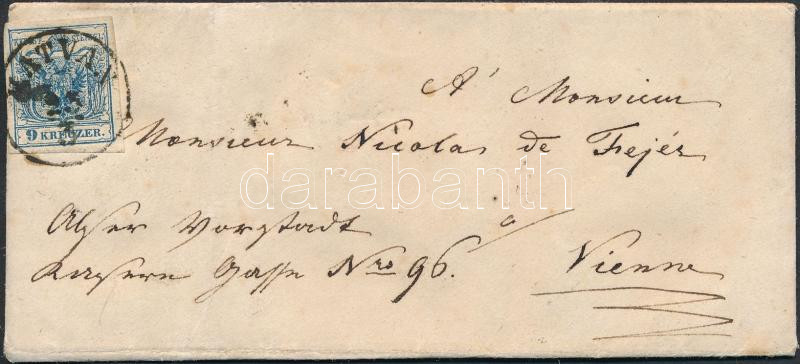 HATVAN
9 KREUZER.
A' Monsieur
Monsieur Nicolas de Fejér
darabanth
Alser Vorstadt
à Vienne
Kasern Gasse Nro 96.